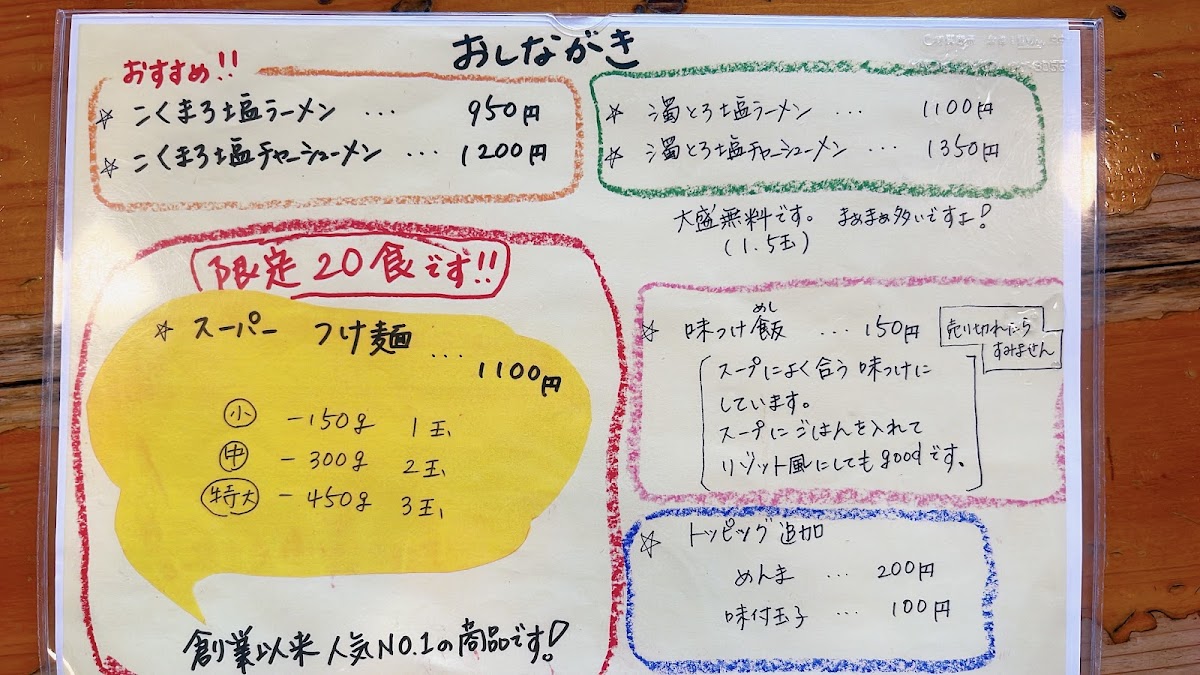 おしながき
おすすめ!!
☆ こくまろ塩ラーメン … 950円
☆ こくまろ塩チャーシューメン … 1200円
☆ 濁とろ塩ラーメン … 1100円
☆ 濁とろ塩チャーシューメン … 1350円
大盛無料です。 まあまあ多いですよ!
(1.5玉)
限定20食です!!
☆ スーパー つけ麺 … 1100円
小 -150g 1玉
中 -300g 2玉
特大 -450g 3玉
創業以来人気NO.1の商品です!
めし
☆ 味つけ飯 … 150円
売り切れたら
すみません
スープによく合う味つけに
しています。
スープにごはんを入れて
リゾット風にしてもgoodです。
☆ トッピング追加
めんま … 200円
味付玉子 … 100円